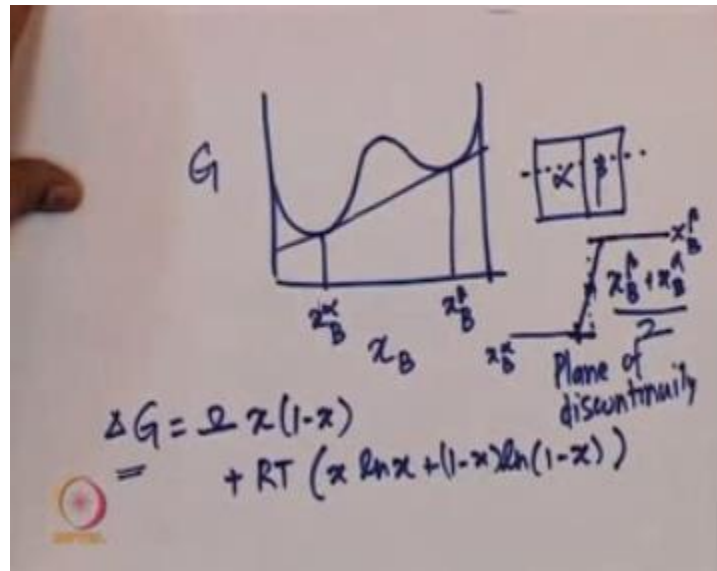 G
α β
x_B^β
x_B^β + x_B^α
2
x_B^α x_B^β
x_B
x_B^α
Plane of
discontinuity
ΔG = Ω x(1-x)
+ RT (x ln x + (1-x) ln (1-x))